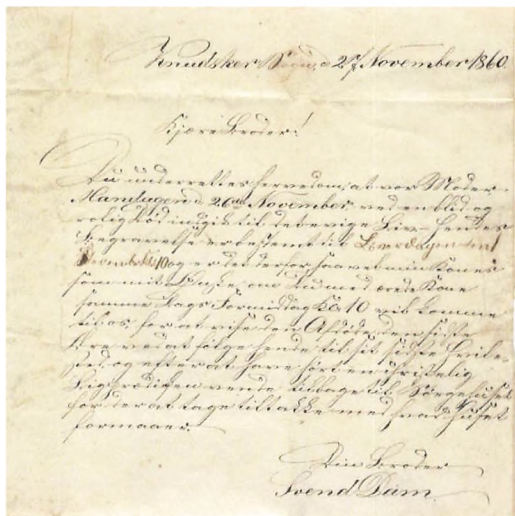 Knudsker Sogn d 27 November 1860.
Kjære Broder!
Du underrettes herved om, at vor Moder
Mandagen d. 26de November ved en blid og
rolig Död indgik til det evige Liv – Hendes
Begravelse er bestemt til Löverdagen den 1
December Kl 10 og er det derfor saavel min Kones
som mit Ønske, at Du med ærede Kone
samme Dags Formiddag Kl. 10 vil komme
til os for at vise den Afdöde den sidste
Ære ved at fölge hende til sit sidste Hvile-
sted og efter at have hört en christelig
Liigprædiken vende tilbage til Sörgehuset
for der at tage til takke med hvad Huset
formaaer.
Din Broder
Svend Dam.